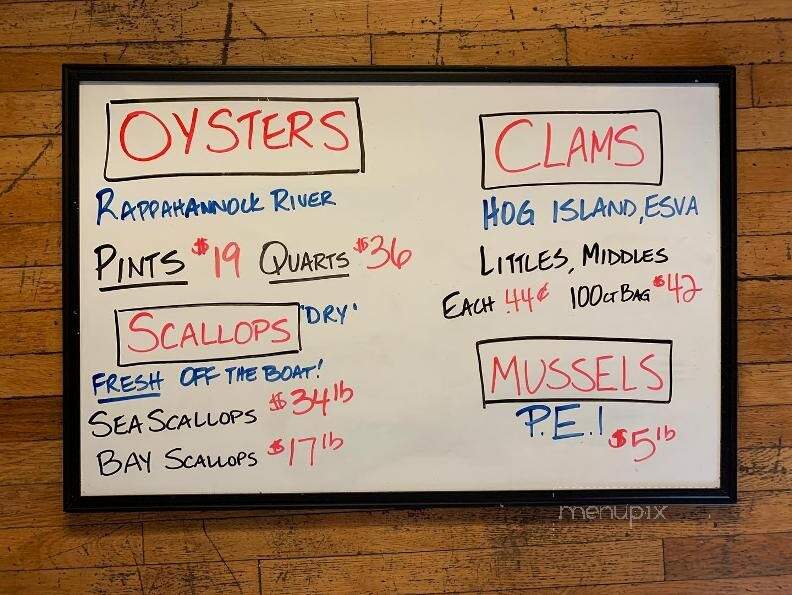 OYSTERS
RAPPAHANNOCK RIVER
PINTS $19 QUARTS $36
SCALLOPS 'DRY'
FRESH OFF THE BOAT!
SEA SCALLOPS $34 lb
BAY SCALLOPS $17 lb
CLAMS
HOG ISLAND, ESVA
LITTLES, MIDDLES
EACH .44¢ 100CT BAG $42
MUSSELS
P.E.I
$5 lb
menupix